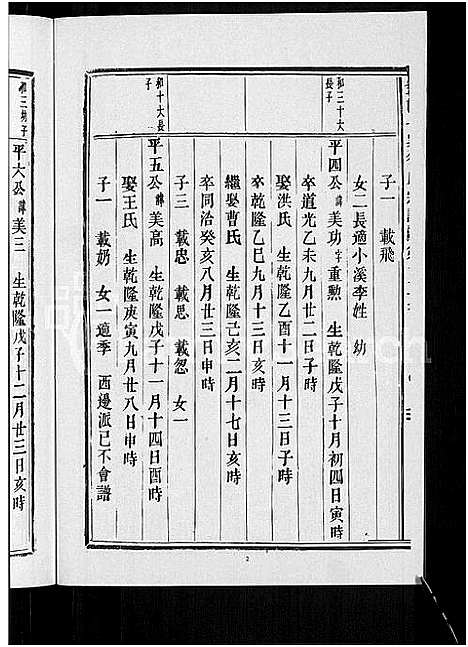 子一 載飛
女二長適小溪李姓 幼
和三十大長子
平四公 諱 美功 字 重勲 生乾隆戊子十月初四日寅時
卒道光乙未九月廿二日子時
娶洪氏 生乾隆乙酉十一月十三日子時
卒乾隆乙巳九月十三日亥時
繼娶曹氏 生乾隆己亥二月十七日亥時
卒同治癸亥八月廿三日申時
子三 載忠 載思 載忽 女一
和十大長子
平五公 諱 美高 生乾隆戊子十一月十四日酉時
娶王氏 生乾隆庚寅九月廿八日申時
子一 載奶 女一適季 西邊派已不會譜
2
平六公 諱 美三 生乾隆戊子十二月廿三日亥時